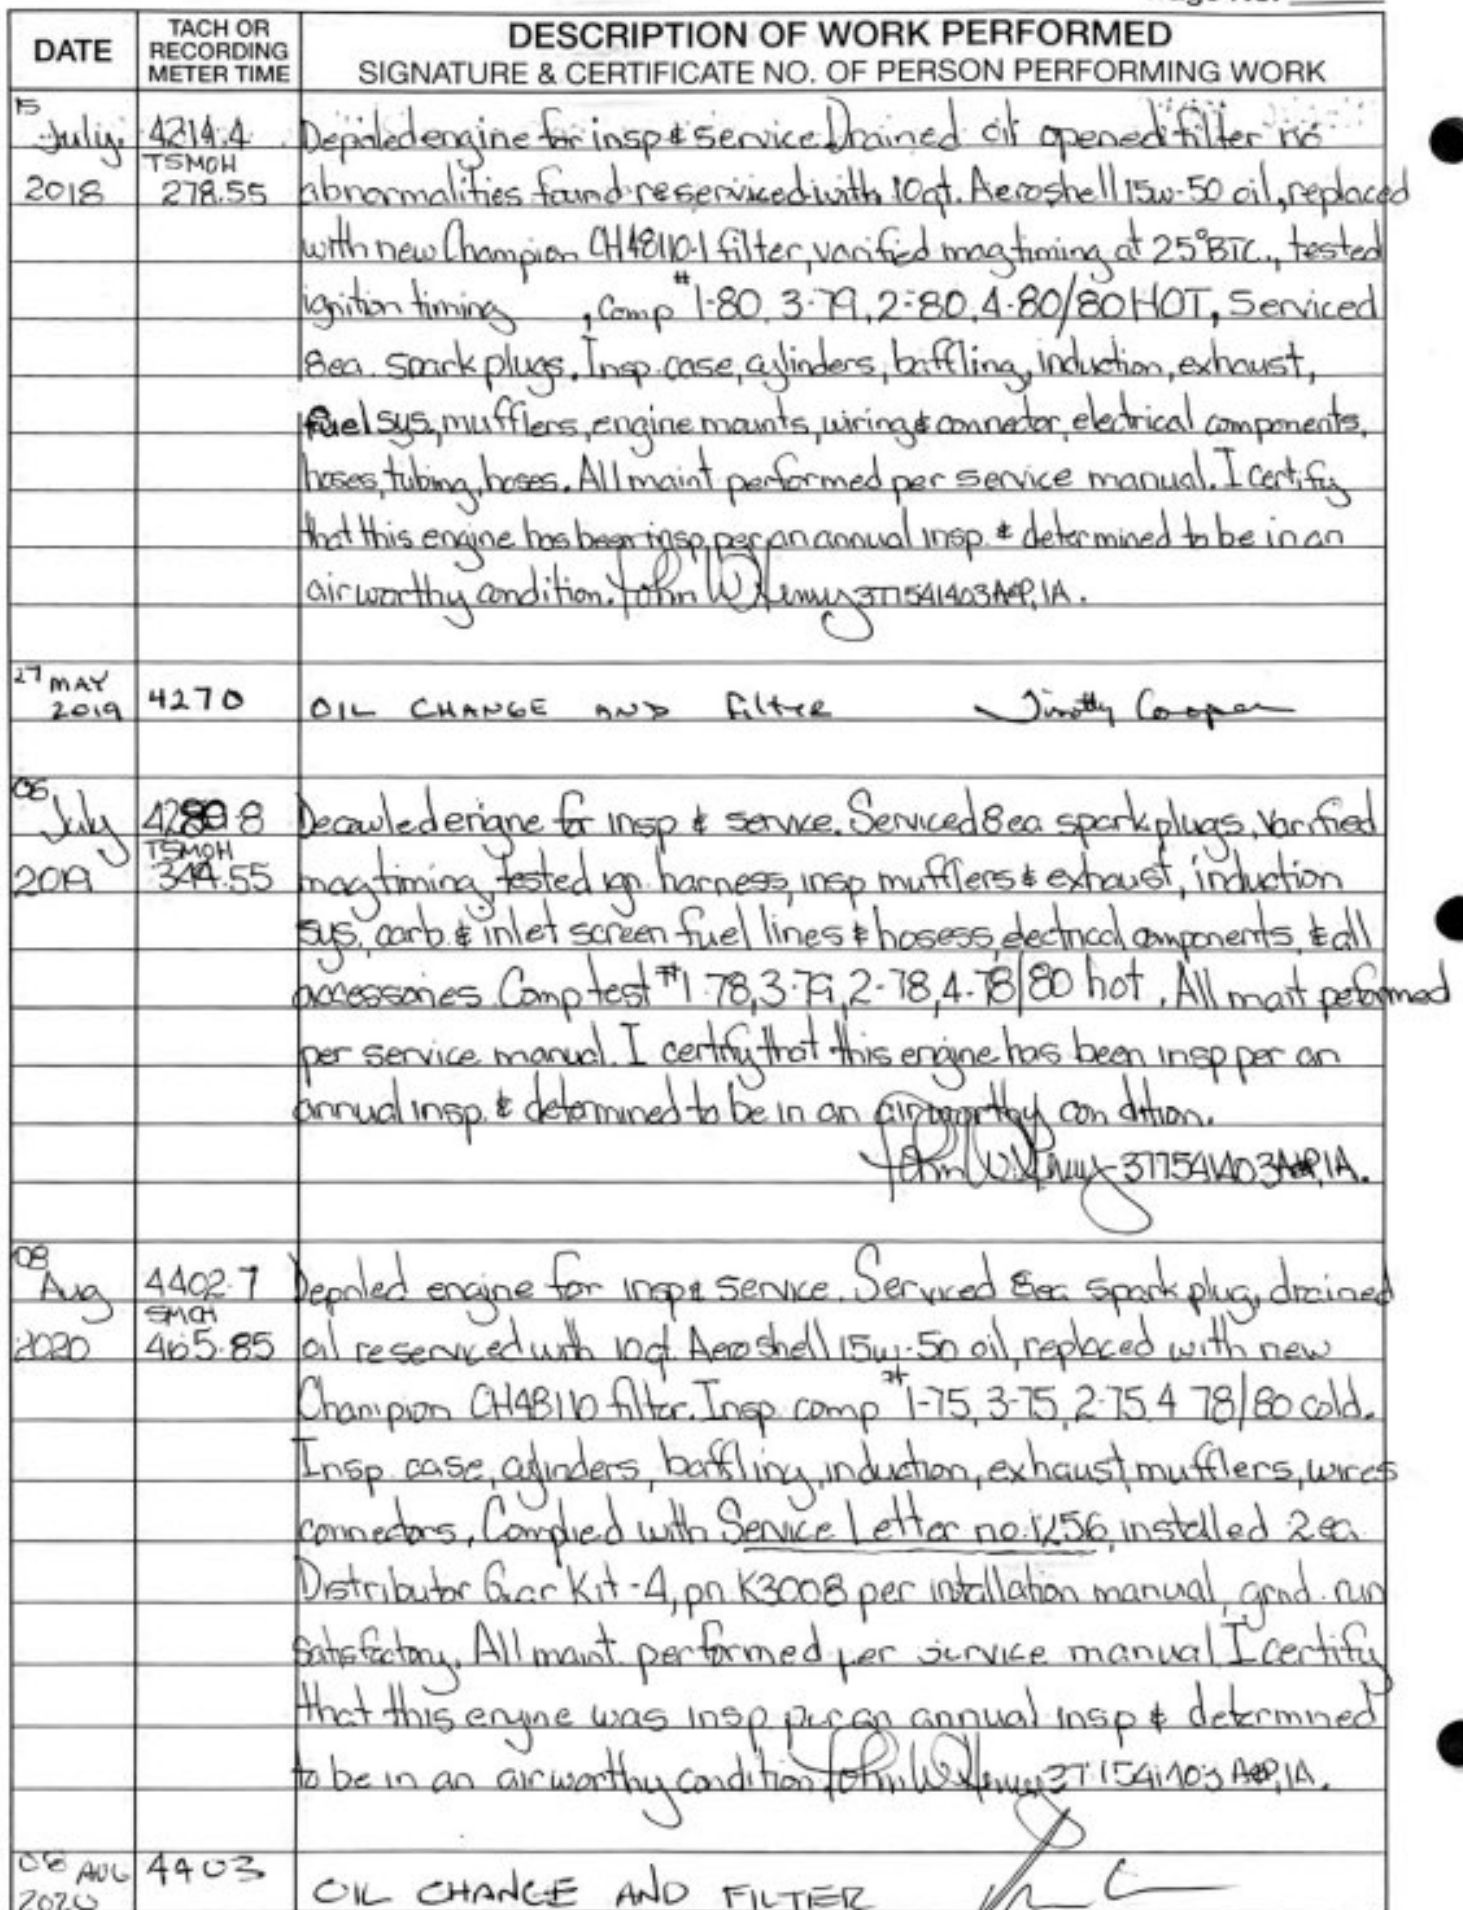 DATE
TACH OR
RECORDING
METER TIME
DESCRIPTION OF WORK PERFORMED
SIGNATURE & CERTIFICATE NO. OF PERSON PERFORMING WORK
15
July. 4214.4 engine for insp & service. Drained oil opened filter no
TSMOH
2018 278.55 abnormalities found reserviced with 10qt. Aeroshell 15w-50 oil, replaced
with new Champion CH48110-1 filter, varified mag timing at 25° BTC., tested
ignition timing , Comp #1-80, 3-79, 2-80, 4-80/80 HOT, Serviced
8ea. spark plugs. Insp. case, cylinders, baffling, induction, exhaust,
fuel sys, mufflers, engine mounts, wiring & connector, electrical components,
hoses, tubing, hoses. All maint performed per service manual. I certify
that this engine has been insp. per an annual insp. & determined to be in an
airworthy condition. John W 377541403 A&P, IA.
27 MAY
2019 4270 OIL CHANGE AND FILTER Timothy Cooper
06
July 8 Decowled enigne for insp & service. Serviced 8ea spark plugs, Varified
TSMOH
2019 344.55 mag timing, tested ign. harness, insp mufflers & exhaust, induction
sys, carb. & inlet screen fuel lines & hosess, electrical components, & all
accessories. Comp test #1-78, 3-79, 2-78, 4-78/80 hot. All maint peformed
per service manual. I certify that this engine has been insp per an
annual insp. & determined to be in an airworthy condition.
John W. 377541403 A&P, IA.
08
Aug 4402.7 engine for insp & service. Serviced 8ea spark plug, drained
SMOH
2020 465.85 oil reserviced with 10qt. Aeroshell 15w-50 oil, replaced with new
Champion CH48110 filter. Insp. comp #1-75, 3-75, 2-75 4 78/80 cold.
Insp. case, cylinders, baffling, induction, exhaust, mufflers, wires
connectors, Complied with Service Letter no. 1256, installed 2ea.
Distributor Gear Kit-4, pn K3008 per intallation manual, grnd. run
satisfactory. All maint. performed per service manual I certify
that this engine was insp. per an annual insp & determined
to be in an airworthy condition John W A&P, IA.
08 AUG 4403
2020 OIL CHANGE AND FILTER